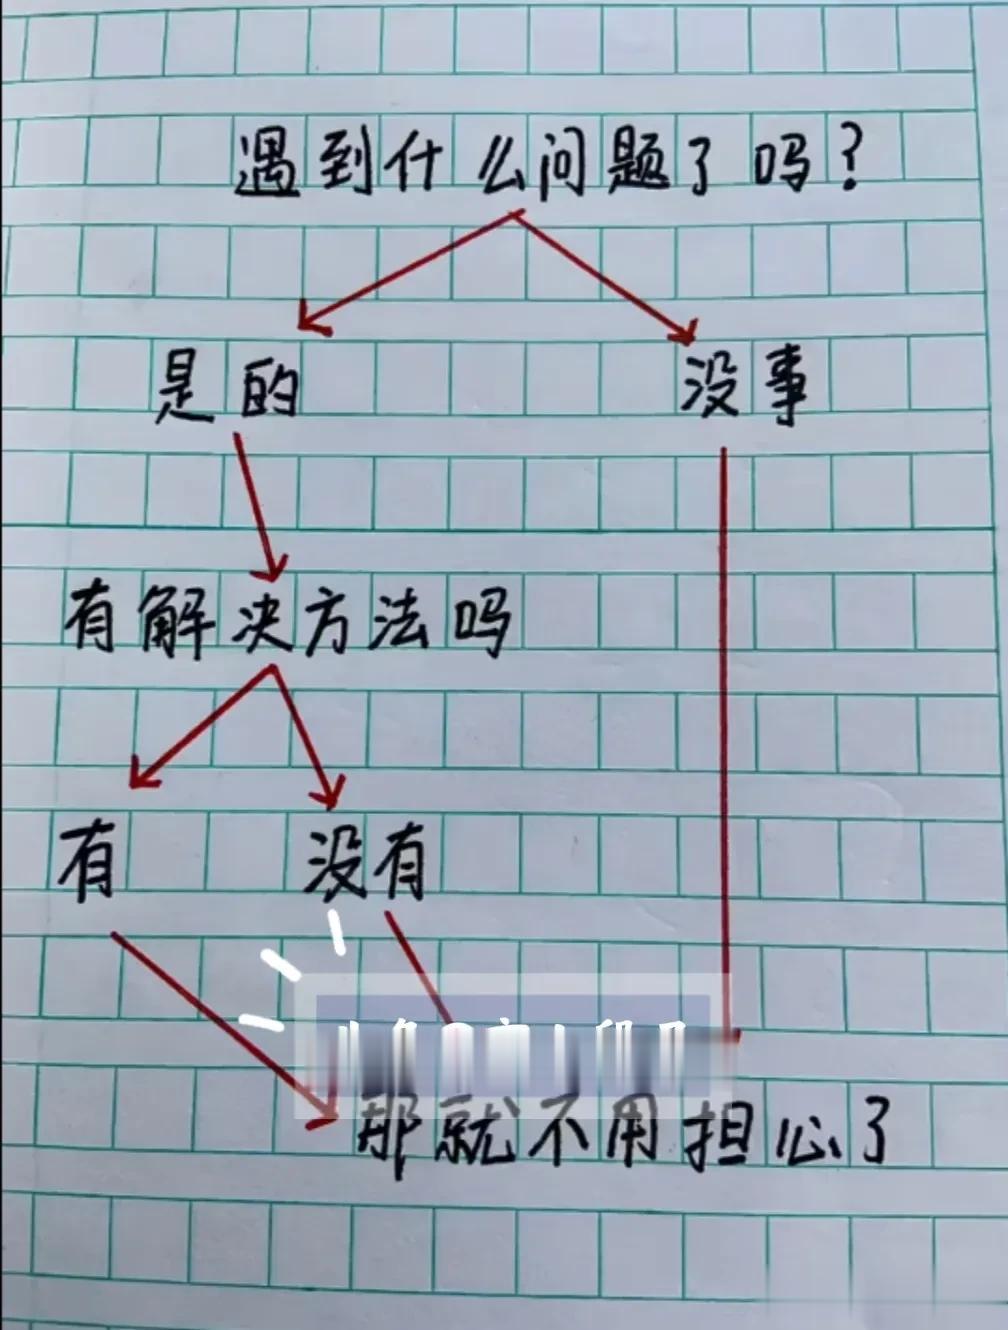 遇到什么问题了吗?
是的
没事
有解决方法吗
有
没有
那就不用担心了